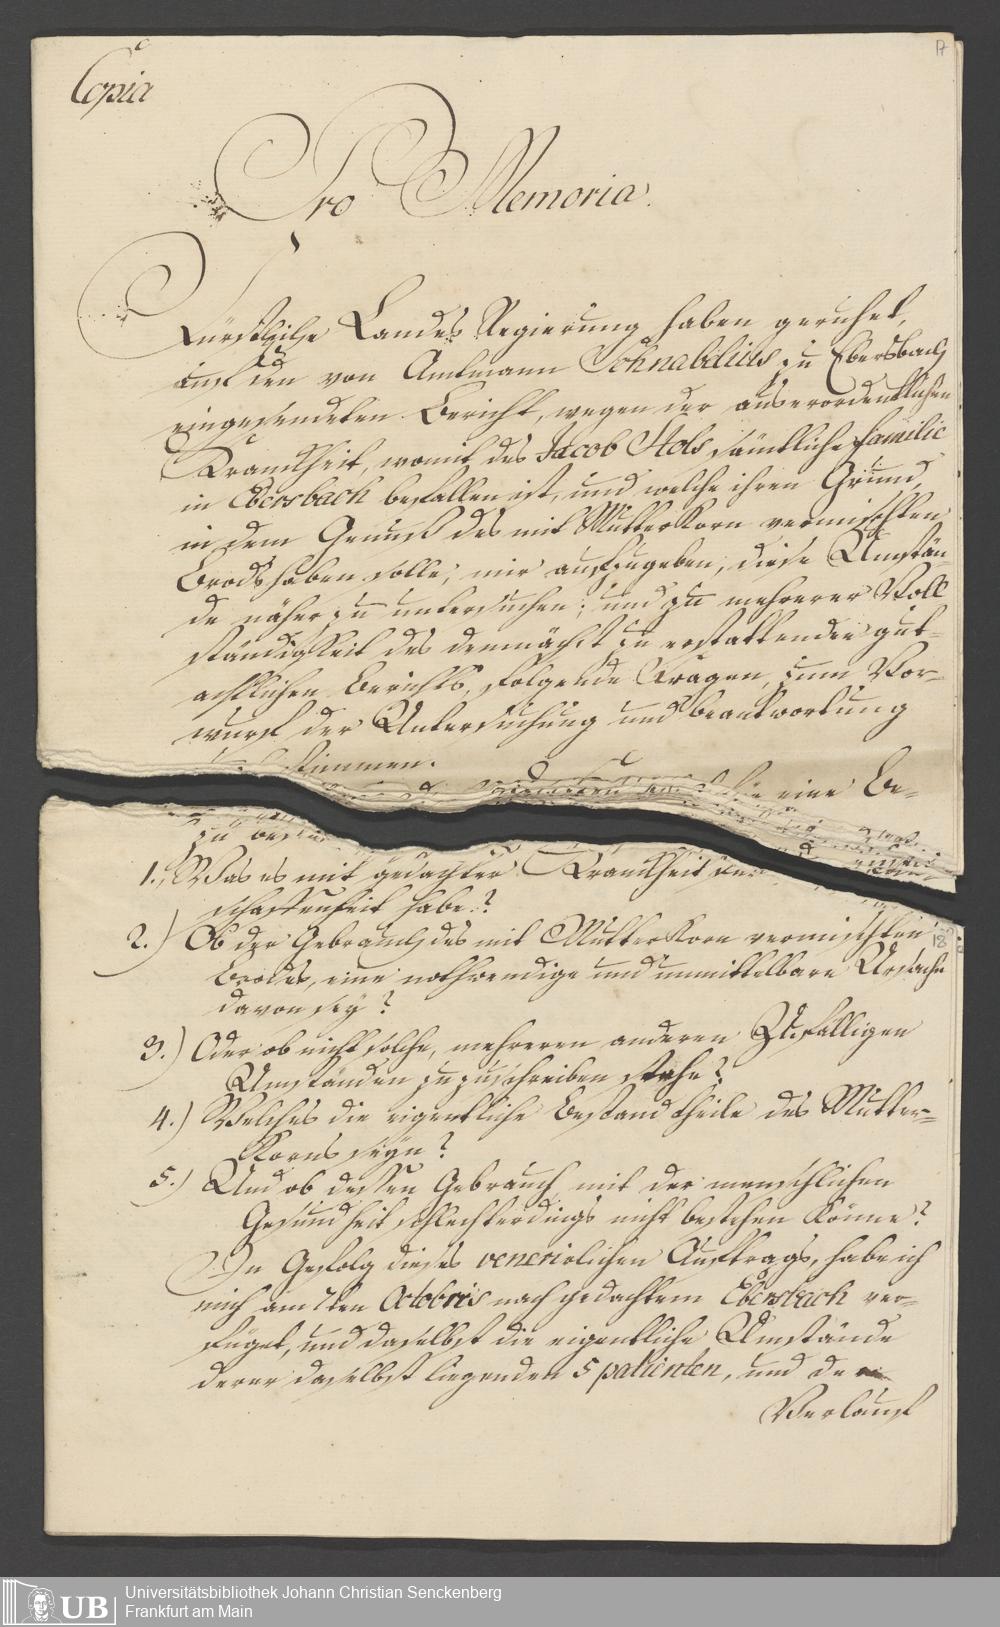 17
Copia
Pro Memoria.
Fürstliche Landes Regierung haben geruhet,
auf den von Amtmann Schnabelius zu Ebersbach
eingesendeten Bericht, wegen der auserordentlichen
Kranckheit, womit des Jacob Hols sämtliche familie
in Ebersbach befallen ist, und welche ihren Grund,
in dem Genuß des mit Mutterkorn vermischten
Brods haben solle, mir aufzugeben, diese Umstän-
de näher zu untersuchen; und zu mehrerer Voll
ständigkeit des demnächst zu erstattenden gut-
achtlichen Berichts, folgende Fragen, zum Vor-
wurf der Untersuchung und beantwortung
zu bestimmen.
1. Was es mit gedachter Kranckheit für eine Be-
schaffenheit habe?
2.) Ob der Gebrauch des mit Mutterkorn vermischten
18
Brodes, eine nothwendige und unmittelbare Ursache
davon sey?
3.) Oder ob nicht solche, mehreren anderen Zufälligen
Umständen zuzuschreiben stehe?
4.) Welches die eigentliche Bestandtheile des Mutter-
Korns seyn?
5.) Und ob dessen Gebrauch mit der menschlichen
Gesundheit schlechterdings nicht bestehen könne?
In Gefolg dieses venerirlichen Auftrags, habe ich
mich am 7ten Octobris nach gedachtem Ebersbach ver-
füget, und daselbst die eigentliche Umstände
derer daselbst liegenden 5 patienten, und den
Verlauf
UB
Universitätsbibliothek Johann Christian Senckenberg
Frankfurt am Main